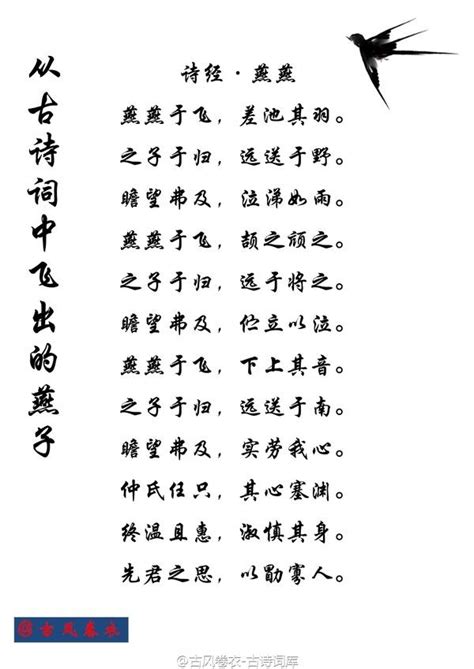 从古诗词中飞出的燕子
诗经·燕燕
燕燕于飞，差池其羽。
之子于归，远送于野。
瞻望弗及，泣涕如雨。
燕燕于飞，颉之颃之。
之子于归，远于将之。
瞻望弗及，伫立以泣。
燕燕于飞，下上其音。
之子于归，远送于南。
瞻望弗及，实劳我心。
仲氏任只，其心塞渊。
终温且惠，淑慎其身。
先君之思，以勖寡人。
@古风卷衣
@古风卷衣-古诗词库